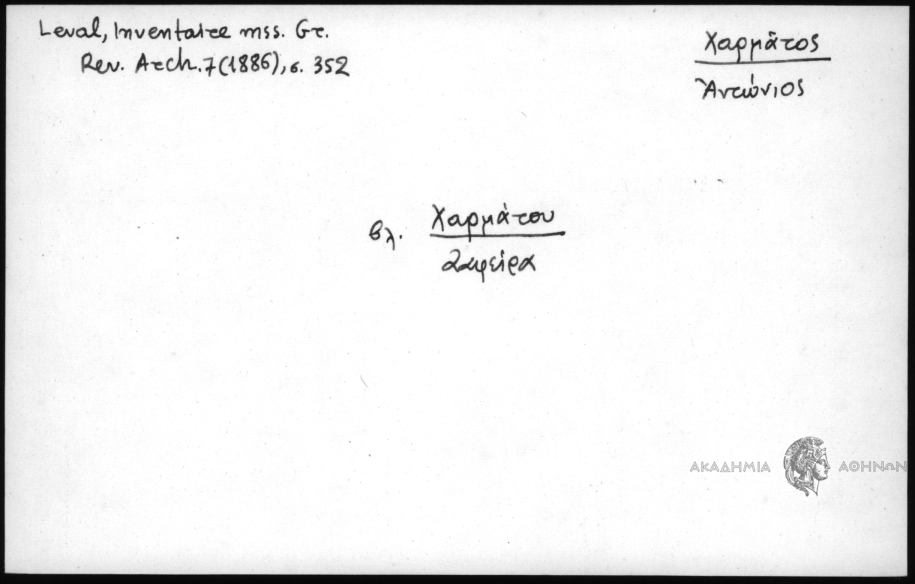 Leval, Inventaire mss. Gr.
Rev. Arch. 7 (1886), σ. 352
Χαρμᾶτος
Ἀντώνιος
βλ. Χαρμάτου
Ζαφείρα
ΑΚΑΔΗΜΙΑ ΑΘΗΝΩΝ